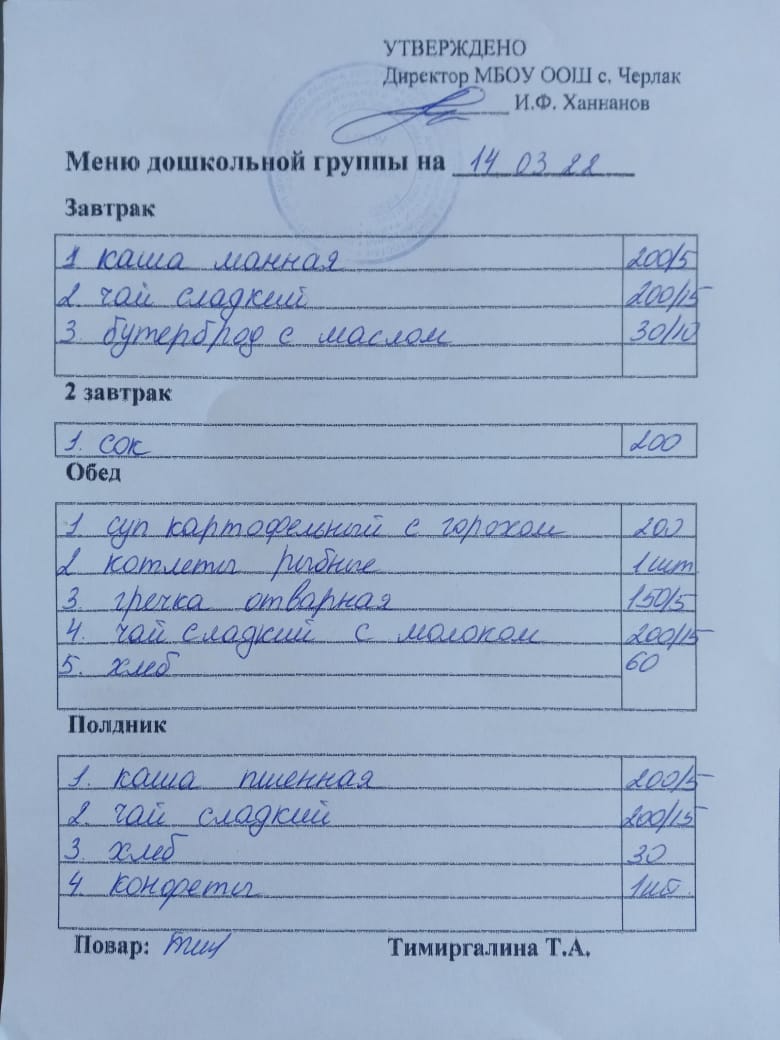 УТВЕРЖДЕНО
Директор МБОУ ООШ с. Черлак
И.Ф. Ханнанов
Меню дошкольной группы на 14 03 22
Завтрак
1 каша манная 200/5
2. чай сладкий 200/15
3. бутерброд с маслом 30/10
2 завтрак
1. сок 200
Обед
1 суп картофельный с горохом 200
2 котлеты рыбные 1 шт.
3. гречка отварная 150/5
4. чай сладкий с молоком 200/15
5. хлеб 60
Полдник
1. каша пшенная 200/5
2. чай сладкий 200/15
3. хлеб 30
4. конфеты 1шт.
Повар: Тимиргалина Т.А.